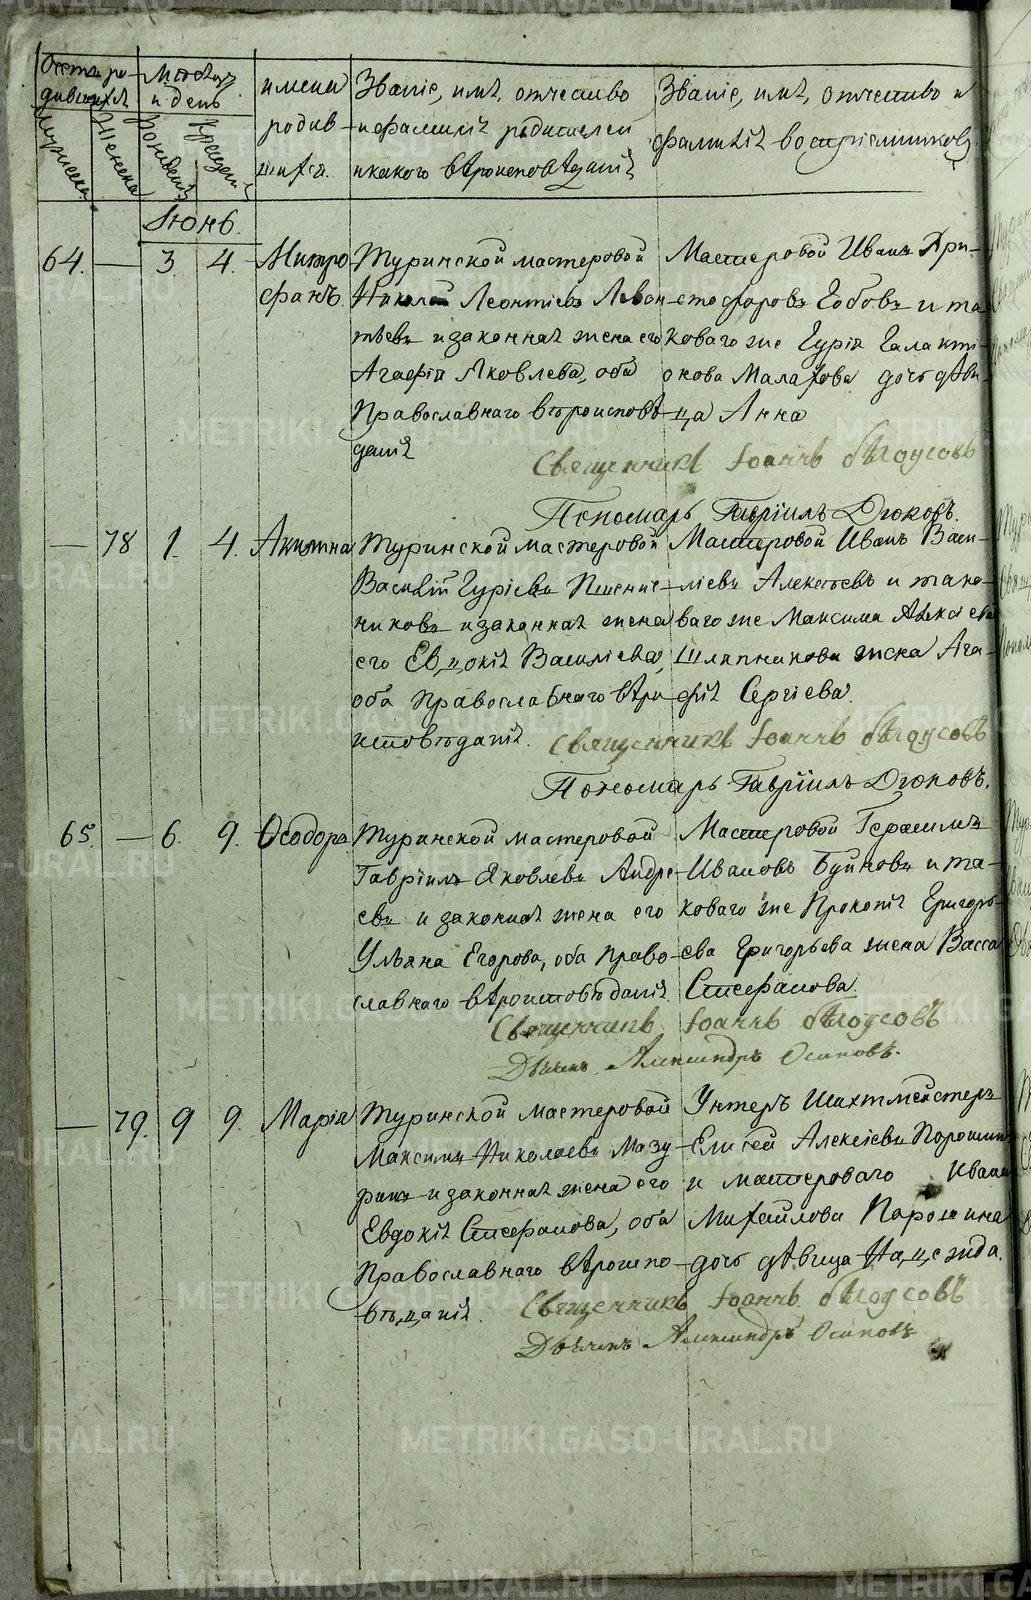 Щетъ ро-
дившихся
Мужеска.
Женска
Мѣсяцъ
и день
Рожденія
Крещенія
имена
родив-
шихся.
Званіе, имя, отчество
и фамилія родителей
и какого вѣроисповѣданія
Званіе, имя, отчество и
фамилія воспріемниковъ
Іюнь.
64. — 3. 4. Митро-
фанъ.
Туринской мастеровой
Николай Леонтіевъ Леван-
тьевъ и законная жена его
Агафія Яковлева, оба
Православнаго вѣроисповѣ-
данія
Мастеровой Иванъ Хри-
стофоровъ Бобовъ и та-
коваго же Гурія Галакті-
онова Малахова дочь дѣви-
ца Анна
Священникъ Іоаннъ Бѣлоусовъ
Пономарь Гавріилъ Дюковъ.
— 78 1. 4. Акилина
Туринской мастеровой
Василій Гуріевъ Пшенич-
никовъ и законная жена
его Евдокія Василіева,
оба Православнаго вѣро-
исповѣданія.
Мастеровой Иванъ Васи-
ліевъ Алексѣевъ и тако-
ваго же Максима Алексіева
Шляпникова жена Ага-
фія Сергіева.
Священникъ Іоаннъ Бѣлоусовъ
Пономарь Гавріилъ Дюковъ.
65. — 6. 9. Ѳеодоръ
Туринской мастеровой
Гавріилъ Яковлевъ Андре-
евъ и законная жена его
Ульяна Егорова, оба право-
славнаго вѣроисповѣданія.
Мастеровой Герасимъ
Ивановъ Буйновъ и та-
коваго же Прокопія Григорь-
ева Григорьева жена Васса
Стефанова.
Священникъ Іоаннъ Бѣлоусовъ
Дьячекъ Александръ Осиповъ.
— 79. 9 9. Марія
Туринской мастеровой
Максимъ Николаевъ Мазу-
ринъ и законная жена его
Евдокія Стефанова, оба
Православнаго вѣроиспо-
вѣданія.
Унтеръ Шахтмейстеръ
Елисей Алексіевъ Порошин
и мастероваго Ивана
Михайлова Порошина
дочь дѣвица Надежда.
Священникъ Іоаннъ Бѣлоусовъ
Дьячекъ Александръ Осиповъ
METRIKI.GASO-URAL.RU